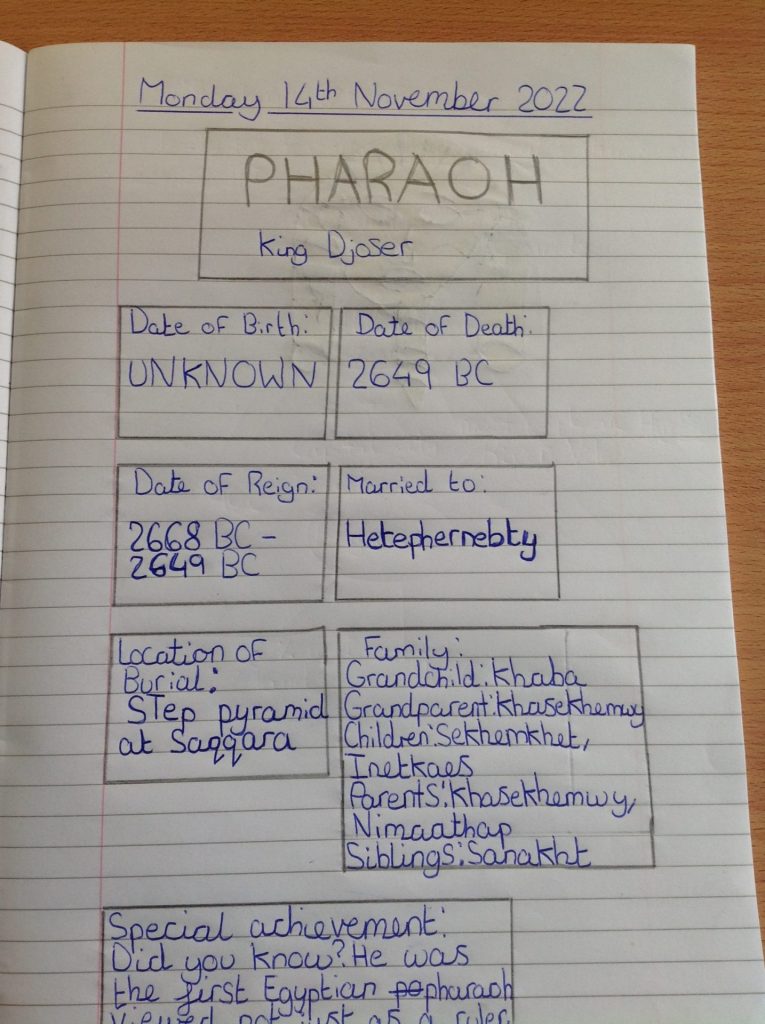 Monday 14th November 2022
PHARAOH
King Djoser
Date of Birth:
UNKNOWN
Date of Death:
2649 BC
Date of Reign:
2668 BC -
2649 BC
Married to:
Hetephernebty
Location of
Burial:
Step pyramid
at Saqqara
Family:
Grandchild: Khaba
Grandparent: Khasekhemwy
Children: Sekhemkhet,
Inetkaes
Parents: Khasekhemwy,
Nimaathap
Siblings: Sanakht
Special achievement:
Did you know? He was
the first Egyptian po pharaoh
viewed not just as a ruler